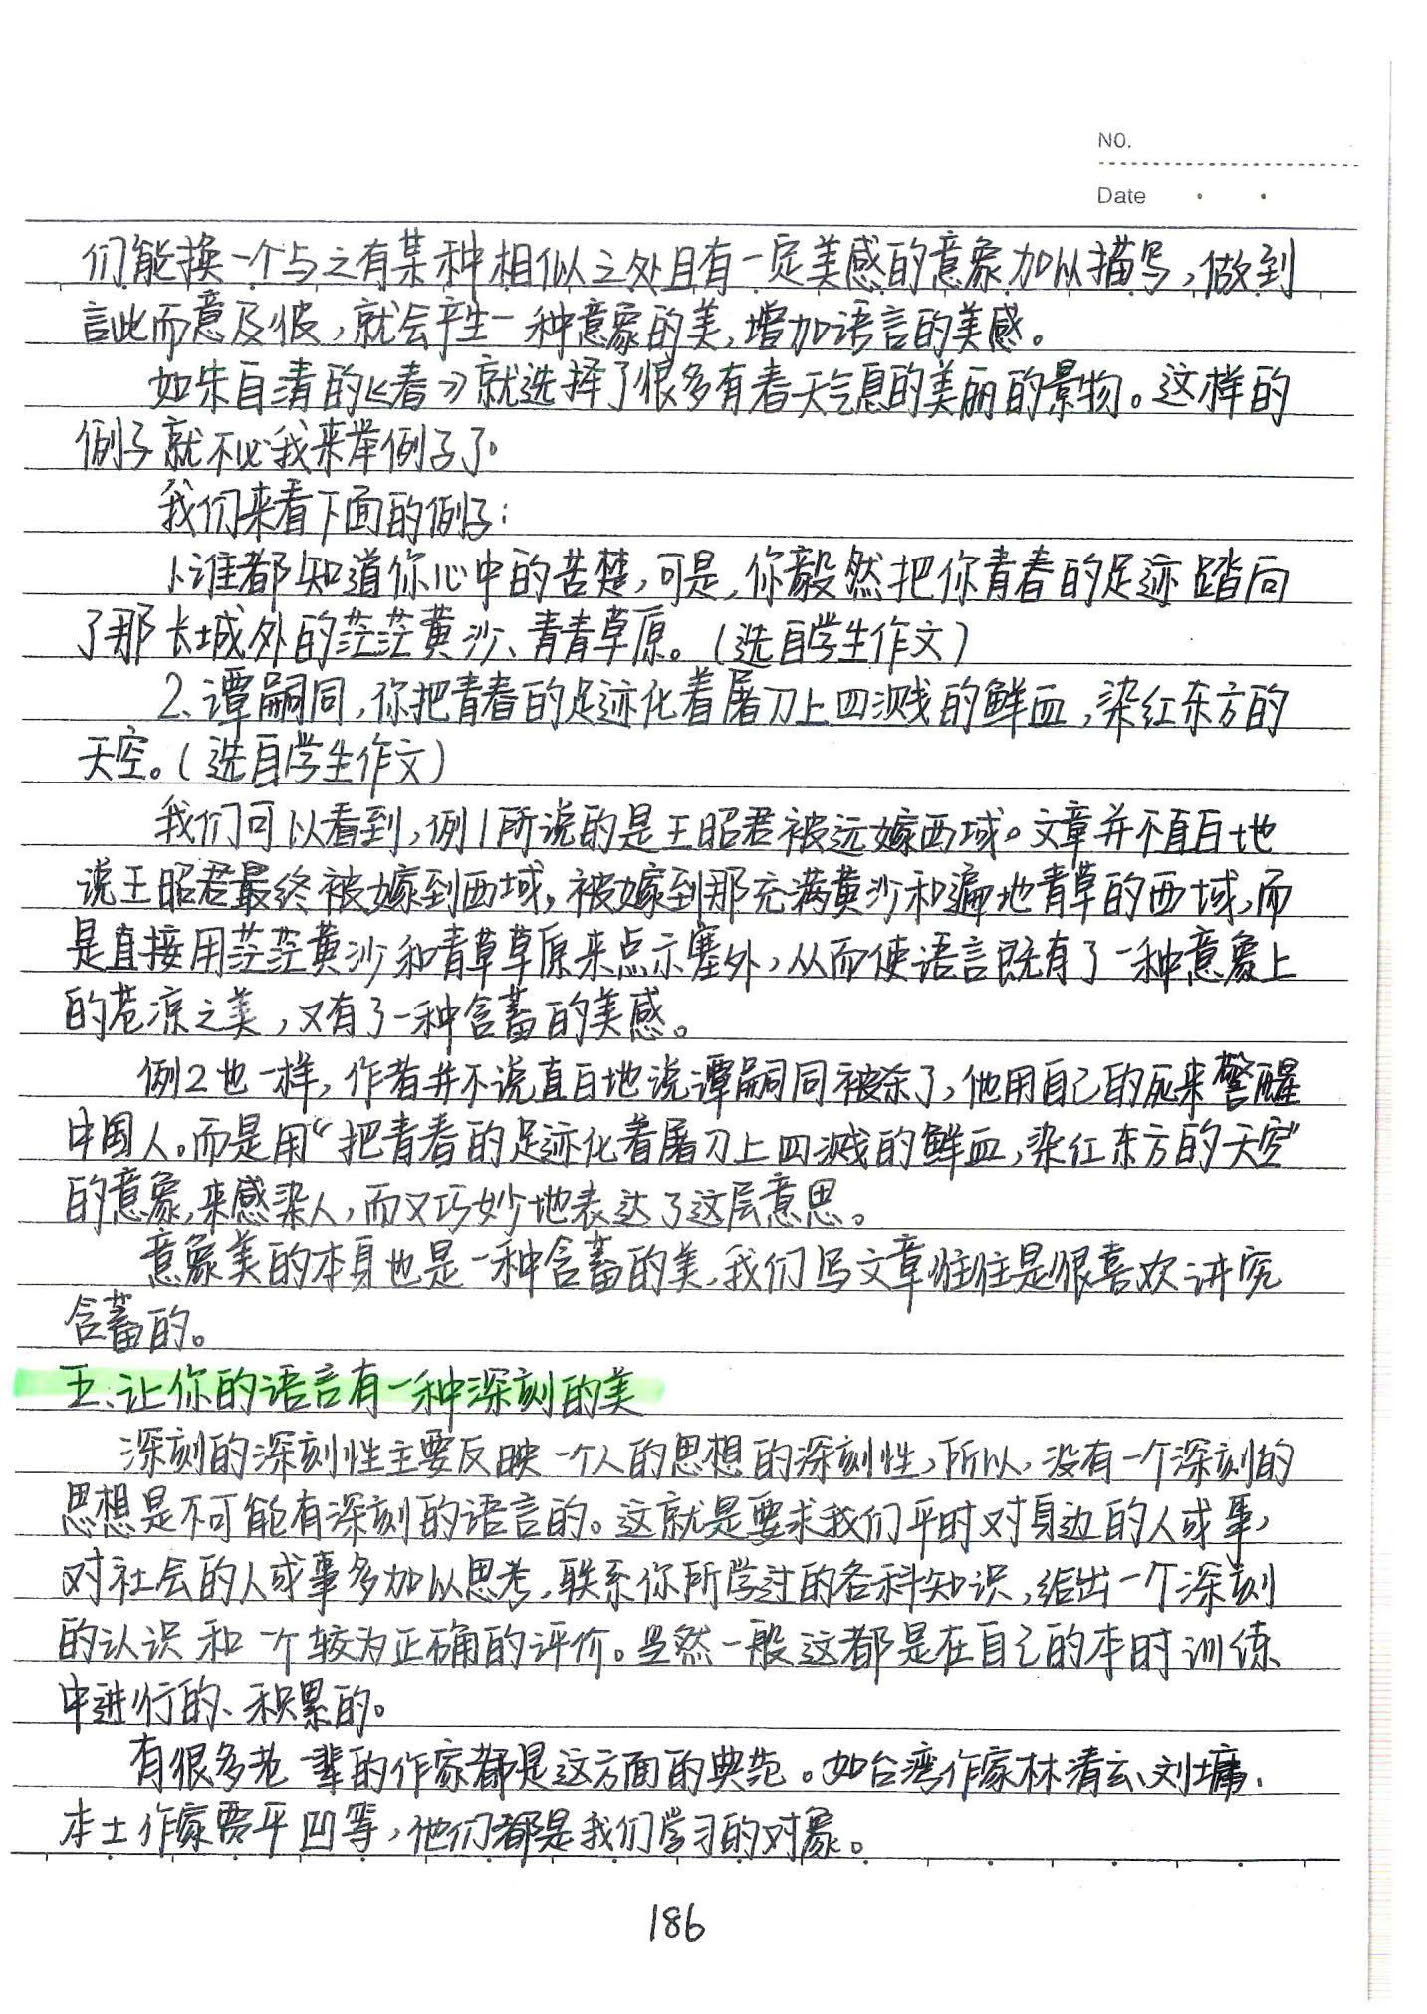 NO.
Date
们能换一个与之有某种相似之处且有一定美感的意象加以描写,做到
言此而意及彼,就会产生一种意象的美,增加语言的美感。
如朱自清的《春》就选择了很多有春天气息的美丽的景物。这样的
例子就不必我来举例子了。
我们来看下面的例子:
1、谁都知道你心中的苦楚,可是,你毅然把你青春的足迹踏向
了那长城外的茫茫黄沙、青青草原。(选自学生作文)
2、谭嗣同,你把青春的足迹化着屠刀上四溅的鲜血,染红东方的
天空。(选自学生作文)
我们可以看到,例1所说的是王昭君被远嫁西域。文章并不直白地
说王昭君最终被嫁到西域,被嫁到那充满黄沙和遍地青草的西域,而
是直接用茫茫黄沙和青草草原来点示塞外,从而使语言既有了一种意象上
的苍凉之美,又有了一种含蓄的美感。
例2也一样,作者并不说直白地说谭嗣同被杀了,他用自己的死来警醒
中国人。而是用“把青春的足迹化着屠刀上四溅的鲜血,染红东方的天空”
的意象,来感染人,而又巧妙地表达了这层意思。
意象美的本身也是一种含蓄的美,我们写文章往往是很喜欢讲究
含蓄的。
五、让你的语言有一种深刻的美
深刻的深刻性主要反映一个人的思想的深刻性,所以,没有一个深刻的
思想是不可能有深刻的语言的。这就是要求我们平时对身边的人或事,
对社会的人或事多加以思考,联系你所学过的各科知识,给出一个深刻
的认识和一个较为正确的评价。当然一般这都是在自己的本时训练
中进行的、积累的。
有很多老一辈的作家都是这方面的典范。如台湾作家林清玄、刘墉,
本土作家贾平凹等,他们都是我们学习的对象。
186